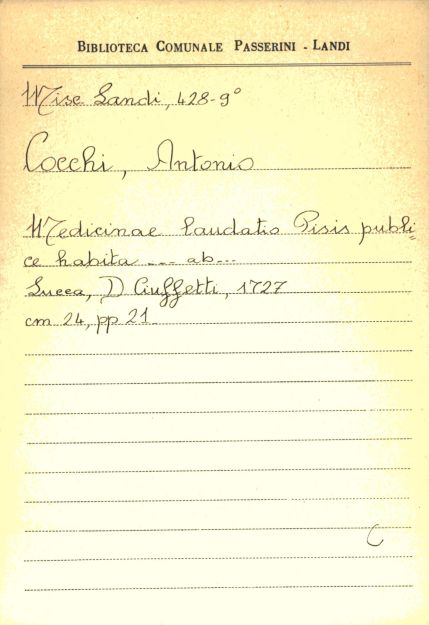 BIBLIOTECA COMUNALE PASSERINI - LANDI
Misc Landi, 428-9°
Cocchi, Antonio
Medicinae laudatio Pisis publi=
ce habita --- ab...
Lucca, D Ciuffetti, 1727
cm 24, pp 21
C